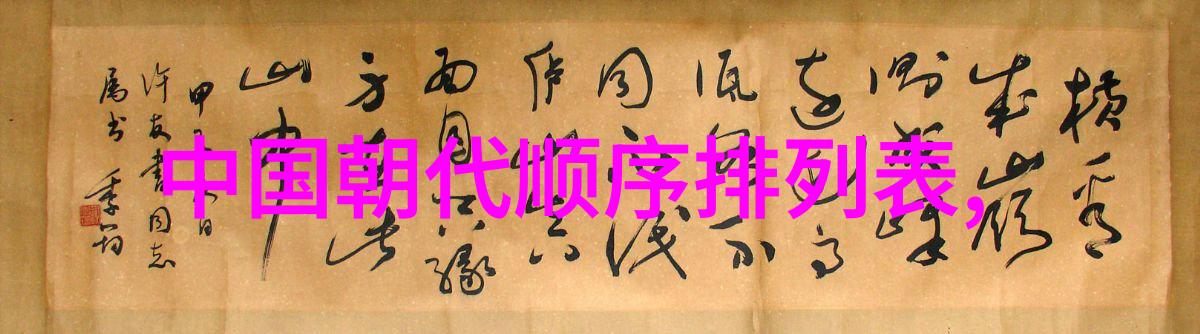 中国朝代顺序排列表,
横看
成嶺
侧成峰
远近高
低各不
同不识
庐山真
面目只缘
身在此
山中
甲 日
许友书同志
属书